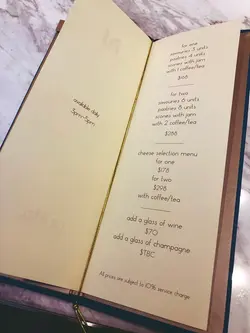 available daily
3pm-5pm
for one
savouries 3 units
pastries 4 units
scones with jam
with 1 coffee/tea
$168
for two
savouries 6 units
pastries 8 units
scones with jam
with 2 coffee/tea
$288
cheese selection menu
for one
$178
for two
$298
with coffee/tea
add a glass of wine
$70
add a glass of champagne
$TBC
All prices are subject to 10% service charge